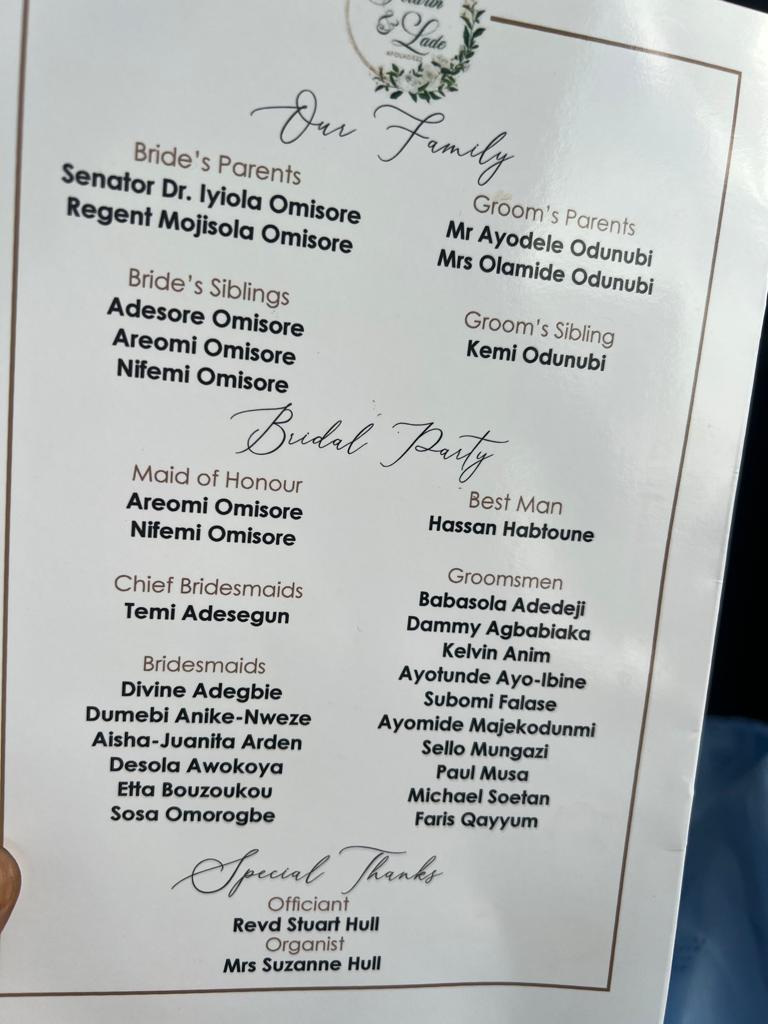 & Lade
Our Family
Bride's Parents
Senator Dr. Iyiola Omisore
Regent Mojisola Omisore
Groom's Parents
Mr Ayodele Odunubi
Mrs Olamide Odunubi
Bride's Siblings
Adesore Omisore
Areomi Omisore
Nifemi Omisore
Groom's Sibling
Kemi Odunubi
Bridal Party
Maid of Honour
Areomi Omisore
Nifemi Omisore
Best Man
Hassan Habtoune
Chief Bridesmaids
Temi Adesegun
Bridesmaids
Divine Adegbie
Dumebi Anike-Nweze
Aisha-Juanita Arden
Desola Awokoya
Etta Bouzoukou
Sosa Omorogbe
Groomsmen
Babasola Adedeji
Dammy Agbabiaka
Kelvin Anim
Ayotunde Ayo-Ibine
Subomi Falase
Ayomide Majekodunmi
Sello Mungazi
Paul Musa
Michael Soetan
Faris Qayyum
Special Thanks
Officiant
Revd Stuart Hull
Organist
Mrs Suzanne Hull